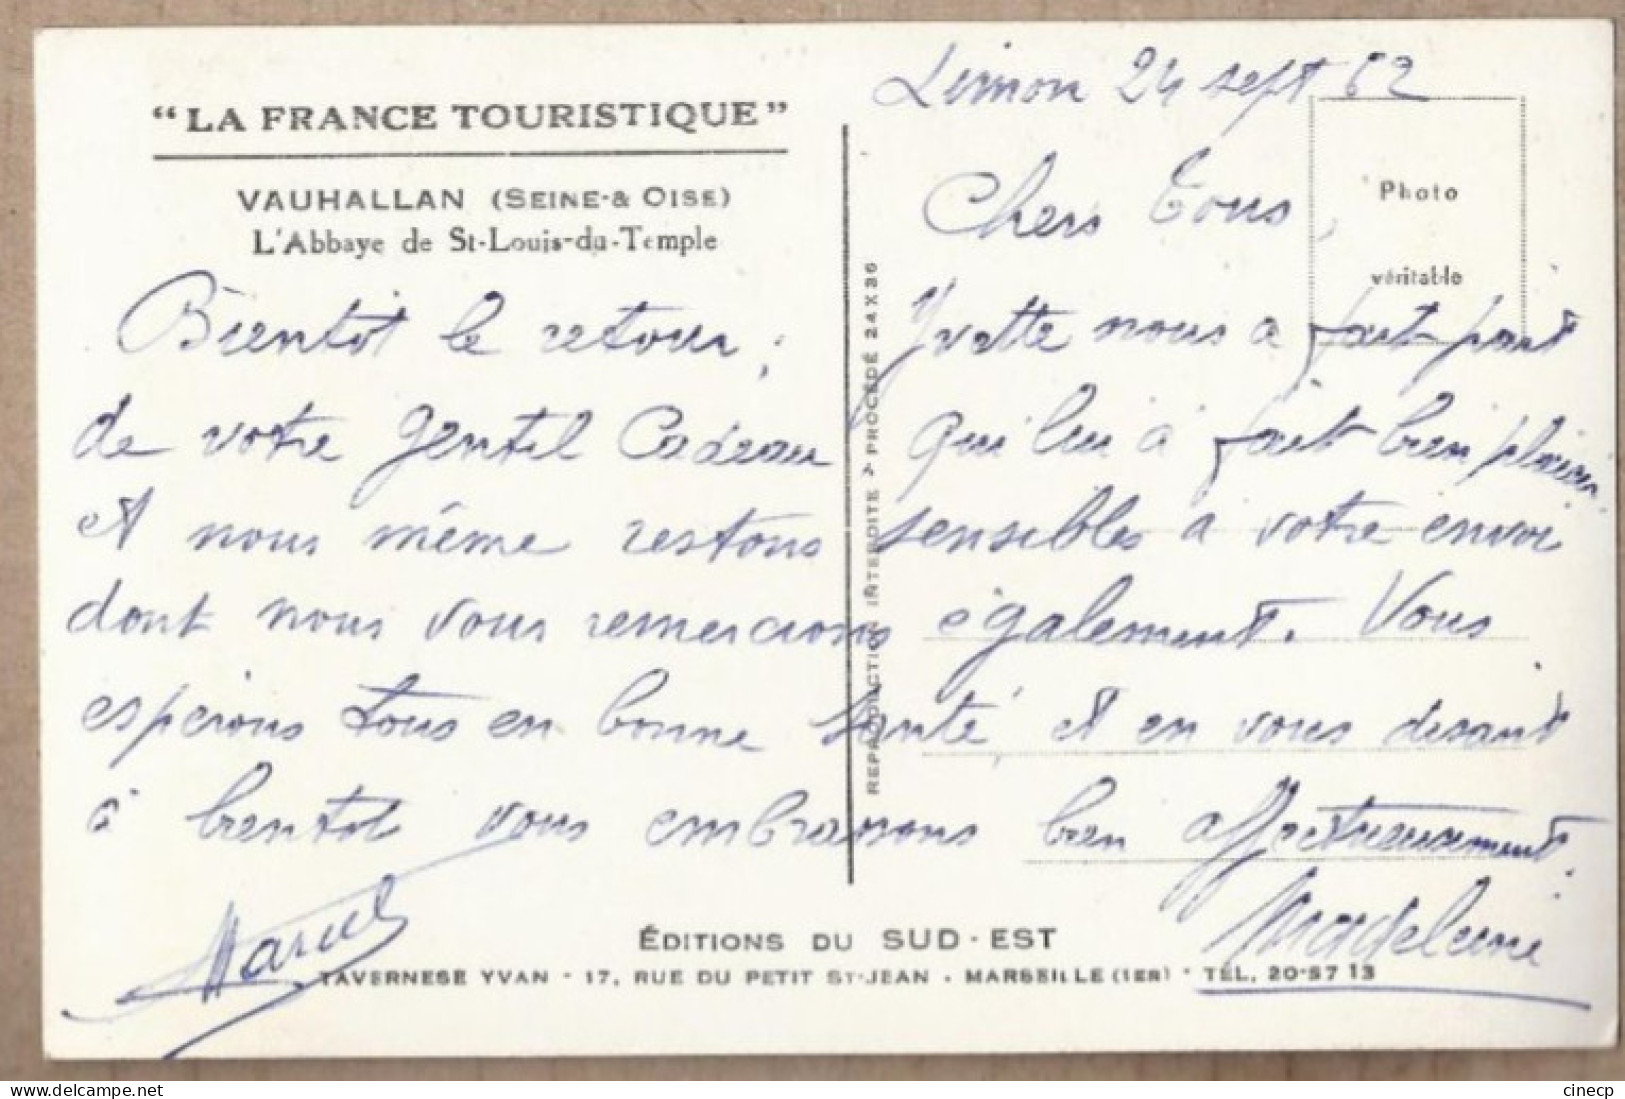 "LA FRANCE TOURISTIQUE"
VAUHALLAN (SEINE-& OISE)
L'Abbaye de St-Louis-du-Temple
Limon 24 sept 62
Photo
véritable
Chers Tous,
Bientôt le retour, Yvette nous a fait part
de votre gentil Cadeau qui lui a fait bien plaisir
et nous même restons sensibles a votre envoi
dont nous vous remercions également. Vous
esperons tous en bonne santé et en vous disant
à bientot vous embrassons bien affectueusement.
Marcel
Madeleine
REPRODUCTION INTERDITE - PROCÉDÉ 24X36
ÉDITIONS DU SUD-EST
TAVERNESE YVAN - 17, RUE DU PETIT ST-JEAN - MARSEILLE (1ER) - TÉL. 20-57 13
cinecp